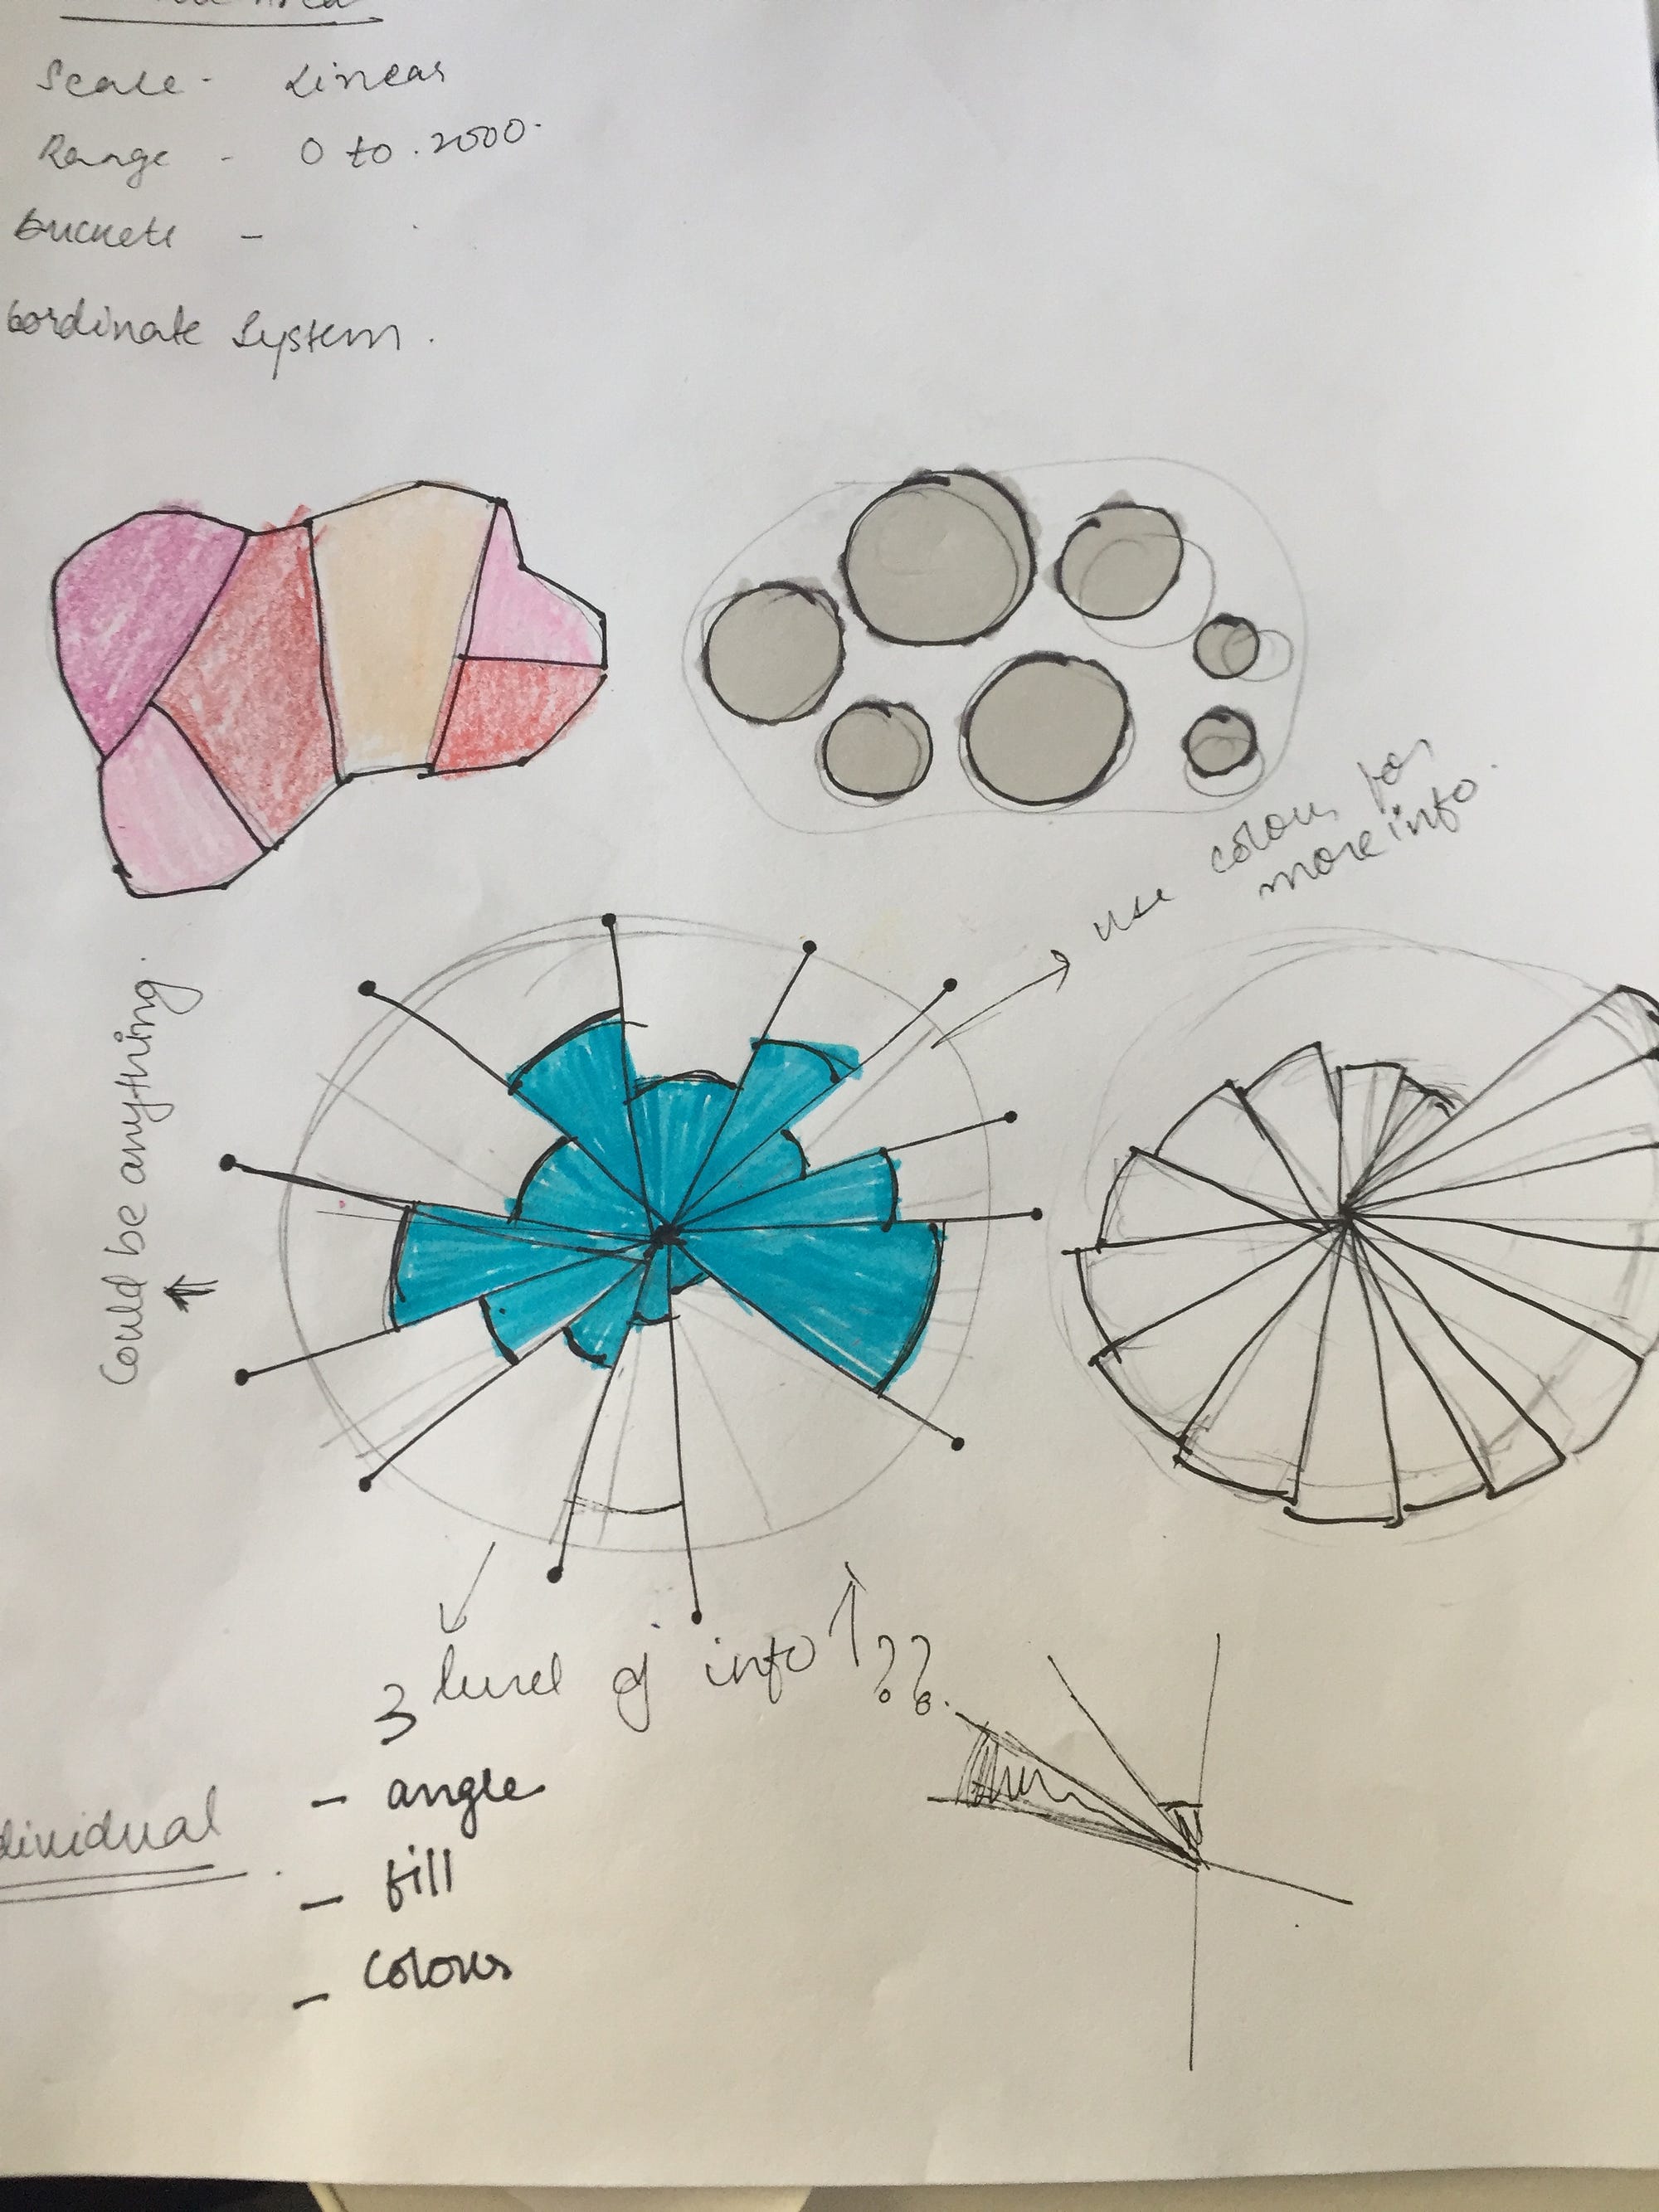 Scale - Linear
Range - 0 to 2000.
buckets -
oordinate System.
use colour for
more info.
Could be anything.
3 level of info ??
- angle
dividual
- fill
- colour